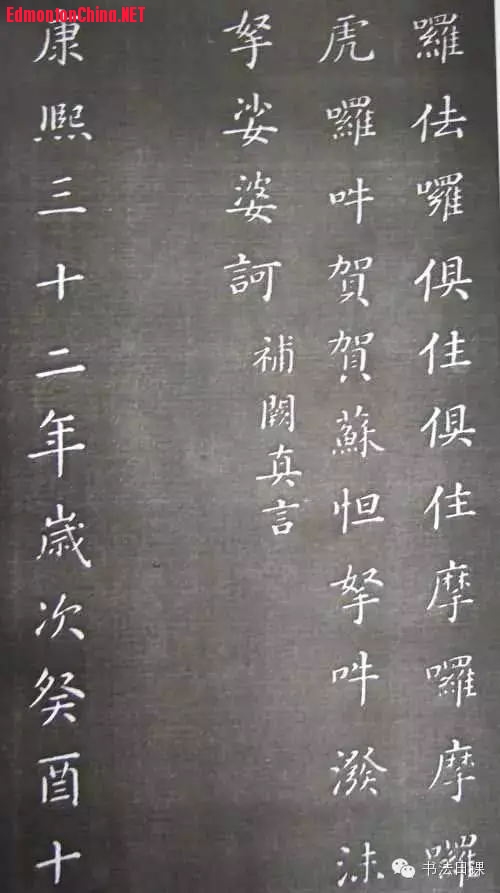 EdmontonChina.NET
羅佉囉俱住俱住摩囉摩囉
虎囉吽賀賀蘇怛拏吽潑沫
拏娑婆訶
補闕真言
康熙三十二年歲次癸酉十
书法日课